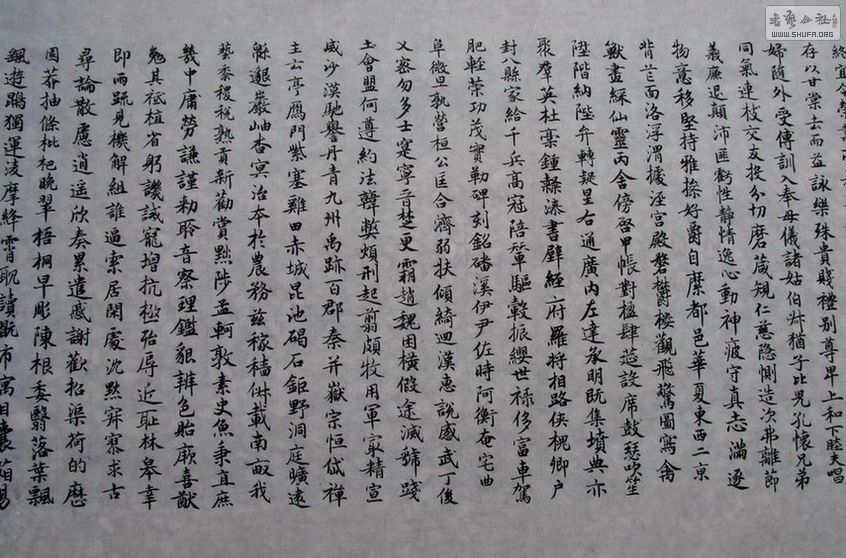 終宜令榮業
存以甘棠去而益詠樂殊貴賤禮別尊卑上和下睦夫唱
婦隨外受傅訓入奉母儀諸姑伯叔猶子比兒孔懷兄弟
同氣連枝交友投分切磨箴規仁慈隱惻造次弗離節
義廉退顛沛匪虧性靜情逸心動神疲守真志滿逐
物意移堅持雅操好爵自縻都邑華夏東西二京
背芒面洛浮渭據涇宮殿磐鬱樓觀飛驚圖寫禽
獸畫綵仙靈丙舍傍啓甲帳對楹肆筵設席鼓瑟吹笙
陞階納陛弁轉疑星右通廣內左達承明既集墳典亦
聚羣英杜稾鍾隸漆書壁經府羅將相路俠槐卿戶
封八縣家給千兵高冠陪輦驅轂振纓世祿侈富車駕
肥輕策功茂實勒碑刻銘磻溪伊尹佐時阿衡奄宅曲
阜微旦孰營桓公匡合濟弱扶傾綺迴漢惠說感武丁俊
乂密勿多士寔寧晉楚更霸趙魏困橫假途滅虢踐
土會盟何遵約法韓弊煩刑起翦頗牧用軍最精宣
威沙漠馳譽丹青九州禹跡百郡秦并嶽宗恒岱禪
主云亭鴈門紫塞雞田赤城昆池碣石鉅野洞庭曠遠
緜邈巖岫杳冥治本於農務茲稼穡俶載南畝我
藝黍稷稅熟貢新勸賞黜陟孟軻敦素史魚秉直庶
幾中庸勞謙謹勑聆音察理鑑貌辨色貽厥嘉猷
勉其祗植省躬譏誡寵增抗極殆辱近恥林皋幸
即兩疏見機解組誰逼索居閑處沈默寂寥求古
尋論散慮逍遙欣奏累遣慼謝歡招渠荷的歷
園莽抽條枇杷晚翠梧桐早彫陳根委翳落葉飄
颻遊鵾獨運凌摩絳霄耽讀翫市寓目囊箱易
書藝公社
WWW.SHUFA.ORG